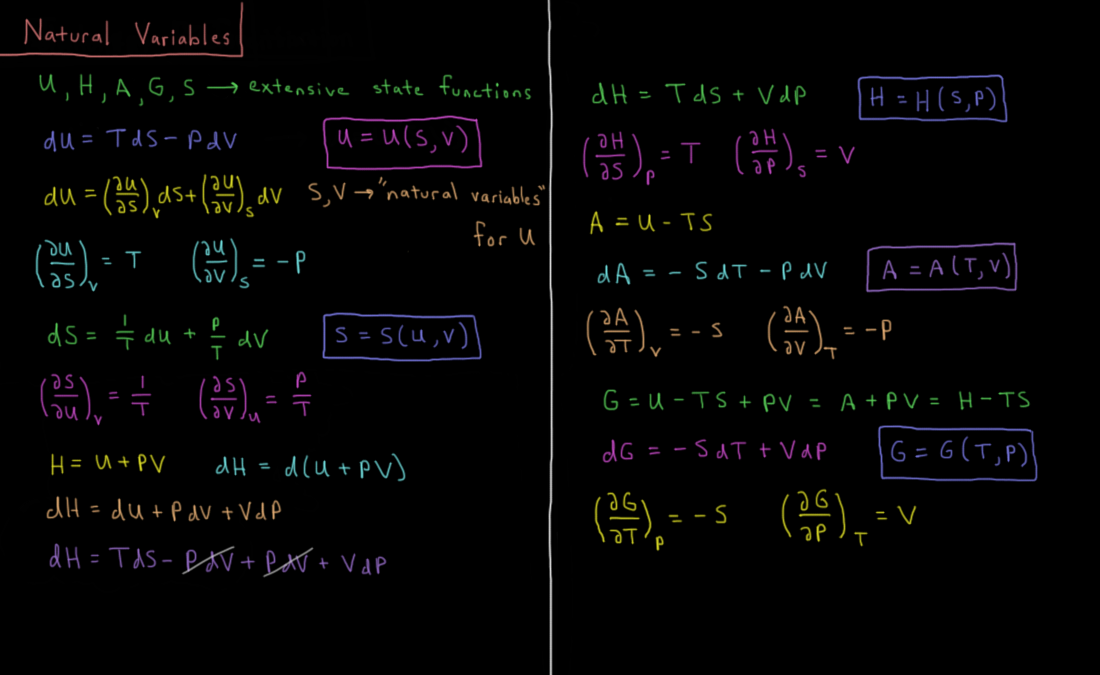 Natural Variables
U, H, A, G, S → extensive state functions
dU = TdS - PdV    U = U(S,V)
dU = (∂U/∂S)_V dS + (∂U/∂V)_S dV    S,V → "natural variables" for U
(∂U/∂S)_V = T    (∂U/∂V)_S = -P
dS = 1/T dU + P/T dV    S = S(U,V)
(∂S/∂U)_V = 1/T    (∂S/∂V)_U = P/T
H = U + PV    dH = d(U + PV)
dH = dU + PdV + VdP
dH = TdS - PdV + PdV + VdP
dH = TdS + VdP    H = H(S,P)
(∂H/∂S)_P = T    (∂H/∂P)_S = V
A = U - TS
dA = -SdT - PdV    A = A(T,V)
(∂A/∂T)_V = -S    (∂A/∂V)_T = -P
G = U - TS + PV = A + PV = H - TS
dG = -SdT + VdP    G = G(T,P)
(∂G/∂T)_P = -S    (∂G/∂P)_T = V